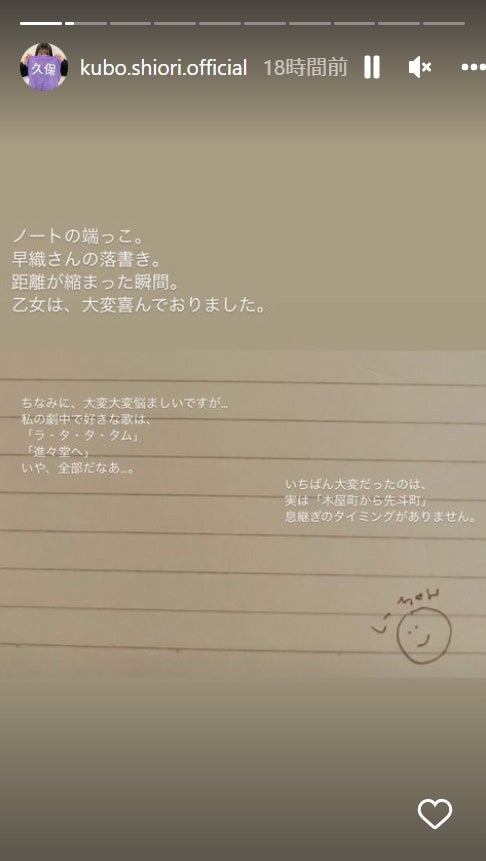 久保
kubo.shiori.official 18時間前
ノートの端っこ。
早織さんの落書き。
距離が縮まった瞬間。
乙女は、大変喜んでおりました。
ちなみに、大変大変悩ましいですが…
私の劇中で好きな歌は、
「ラ・タ・タ・タム」
「進々堂へ」
いや、全部だなあ…。
いちばん大変だったのは、
実は「木屋町から先斗町」
息継ぎのタイミングがありません。